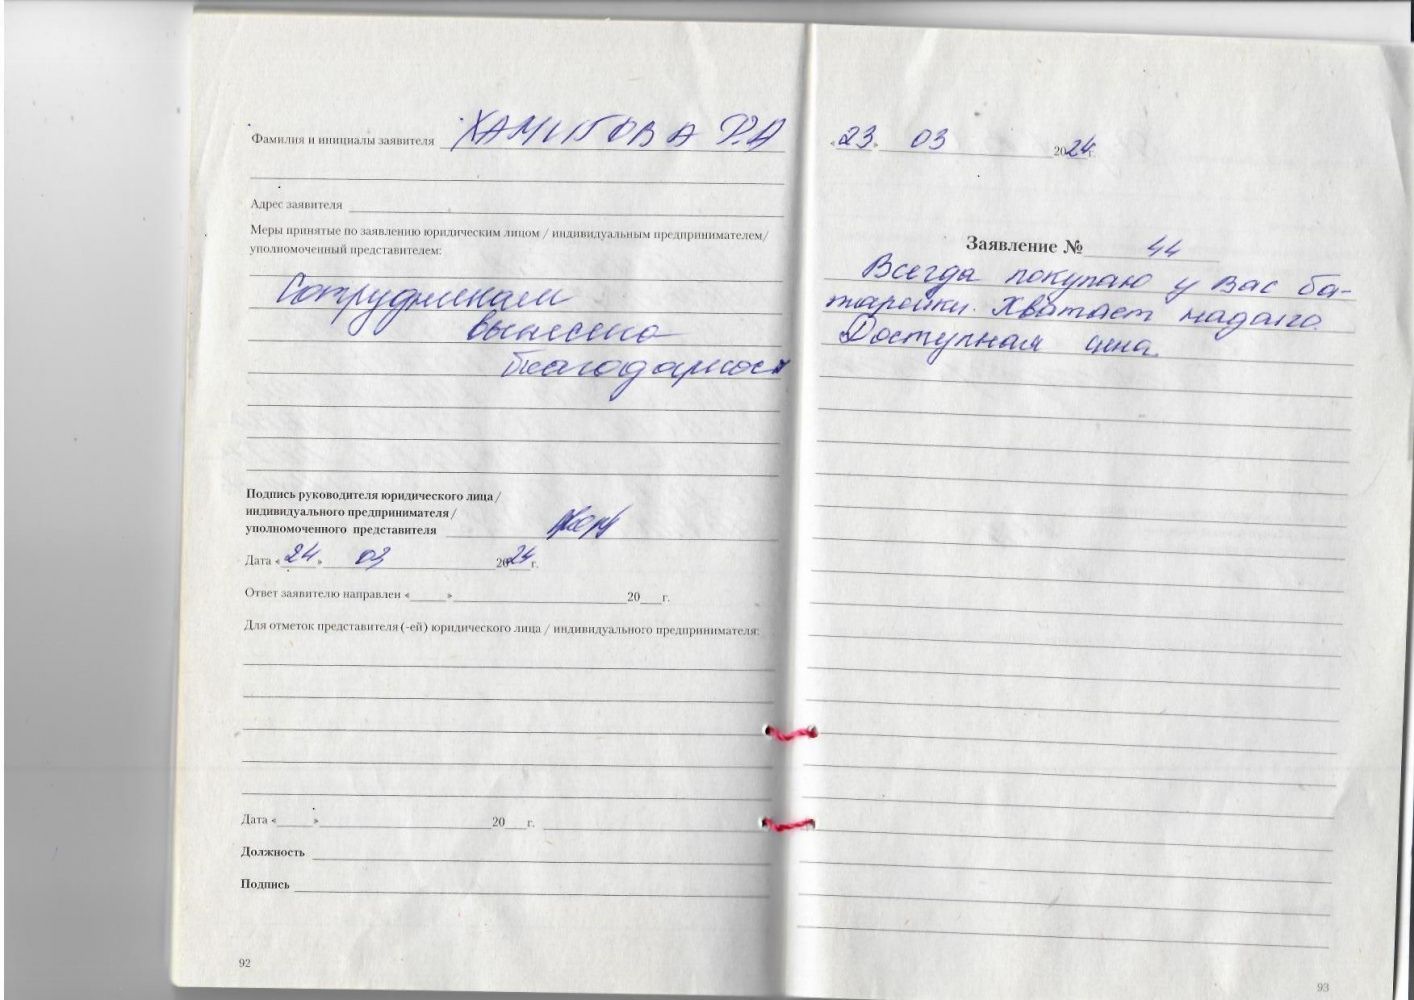 Фамилия и инициалы заявителя ХАМИТОВА Р.А
Адрес заявителя
Меры принятые по заявлению юридическим лицом / индивидуальным предпринимателем/
уполномоченный представителем:
Сотрудникам
вынесена
благодарность
Подпись руководителя юридического лица /
индивидуального предпринимателя /
уполномоченного представителя
Дата «24» 03 2024г.
Ответ заявителю направлен «____»____ 20__г.
Для отметок представителя(-ей) юридического лица / индивидуального предпринимателя:
Дата «____»____ 20__г.
Должность
Подпись
92
«23» 03 2024г.
Заявление № 44
Всегда покупаю у Вас ба-
тарейки. Хватает надолго.
Доступная цена.
93